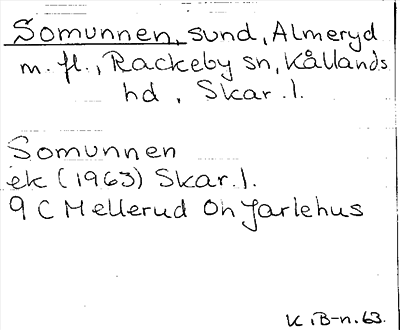 Somunnen, sund, Almeryd
m. fl., Rackeby sn, Kållands
hd, Skar. l.
Somunnen
ek (1963) Skar. l.
9 C Mellerud Oh Jarlehus
K. iB-n. 63.